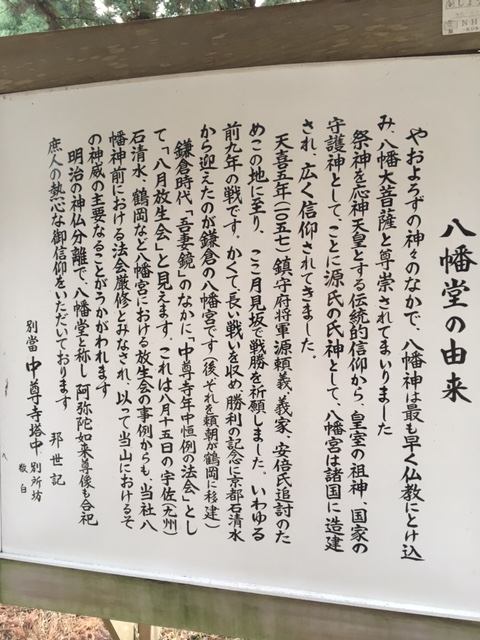 八幡堂の由来
やおよろずの神々のなかで、八幡神は最も早く仏教にとけ込
み、八幡大菩薩と尊崇されてまいりました
祭神を応神天皇とする伝統的信仰から、皇室の祖神、国家の
守護神として、ことに源氏の氏神として、八幡宮は諸国に造建
され、広く信仰されてきました。
天喜五年(一〇五七)鎮守府将軍源頼義、義家、安倍氏追討のた
めこの地に至り、ここ月見坂で戦勝を祈願しました、いわゆる
前九年の戦です。かくて、長い戦いを収め、勝利の記念に京都石清水
から迎えたのが鎌倉の八幡宮です(後、それを頼朝が鶴岡に移建)
鎌倉時代「吾妻鏡」のなかに「中尊寺年中恒例の法会」とし
て「八月放生会」と見えます。これは八月十五日の宇佐(九州)
石清水、鶴岡など八幡宮における放生会の事例からも、当社八
幡神前における法会厳修とみなされ、以って当山におけるそ
の神威の主要なることがうかがわれます
明治の神仏分離で、八幡堂と称し阿弥陀如来尊像も合祀
庶人の熱心な御信仰をいただいております 邦世記
別當 中尊寺塔中 別所坊
敬白
NH